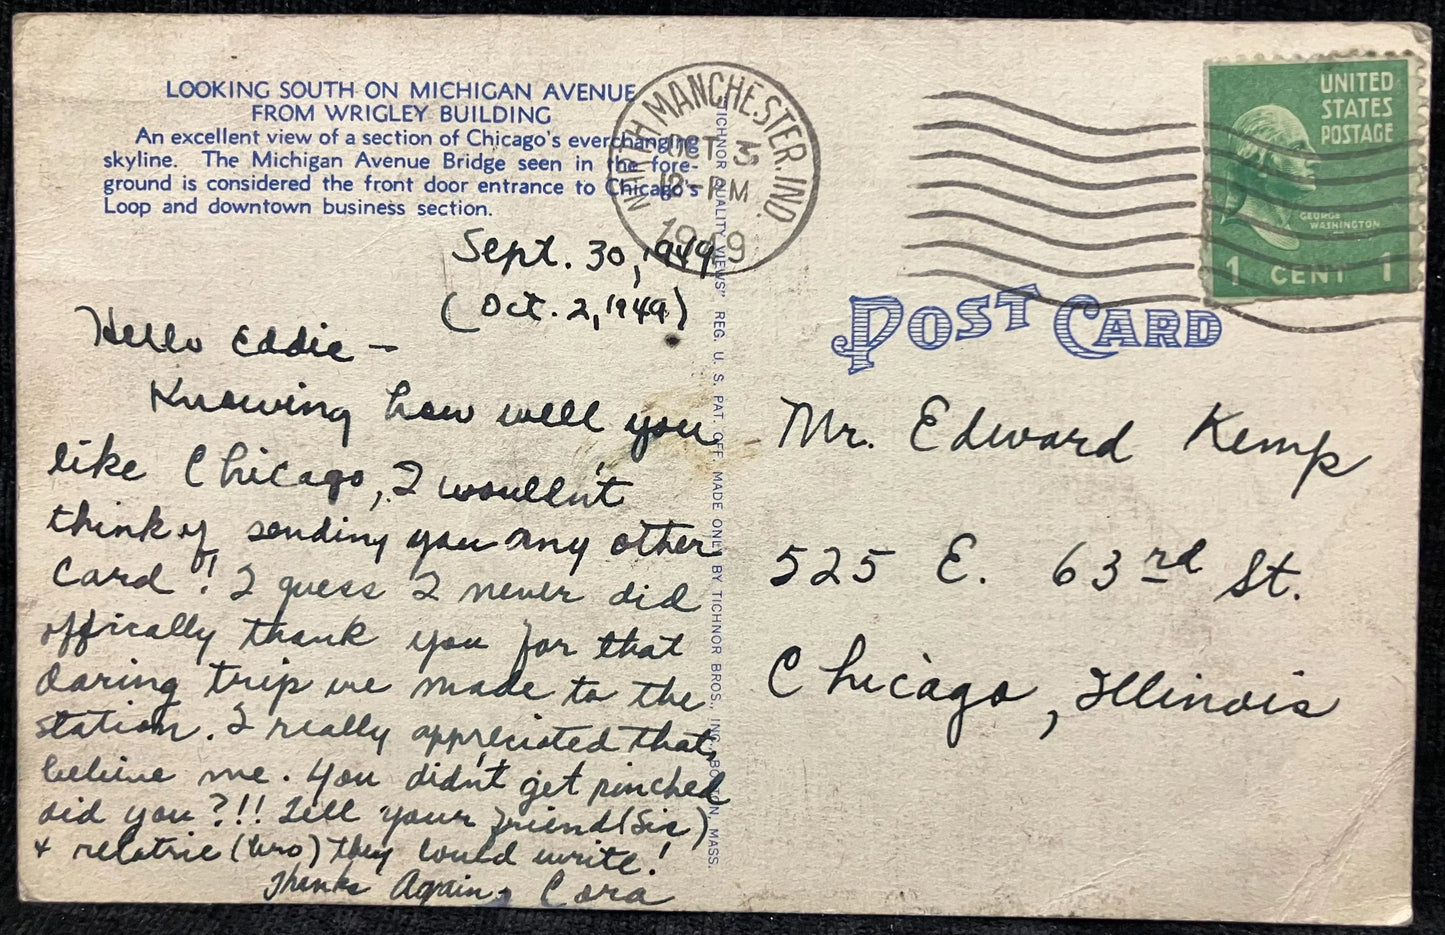 LOOKING SOUTH ON MICHIGAN AVENUE
FROM WRIGLEY BUILDING
An excellent view of a section of Chicago's everchanging
skyline. The Michigan Avenue Bridge seen in the fore-
ground is considered the front door entrance to Chicago's
Loop and downtown business section.
NORTH MANCHESTER, IND.
OCT 3
12 - PM
1949
UNITED
STATES
POSTAGE
GEORGE
WASHINGTON
1 CENT 1
POST CARD
TICHNOR QUALITY VIEWS" REG. U. S. PAT. OFF. MADE ONLY BY TICHNOR BROS., INC., BOSTON, MASS.
Sept. 30, 1949
(Oct. 2, 1949)
Hello Eddie —
Knowing how well you
like Chicago, I wouldn't
think of sending you any other
card! I guess I never did
offically thank you for that
daring trip we made to the
station. I really appreciated that,
believe me. You didn't get pinched
did you?!!! Tell your friend (Sis)
+ relative (bro) they could write!
Thanks Again, Cora
Mr. Edward Kemp
525 E. 63rd St.
Chicago, Illinois